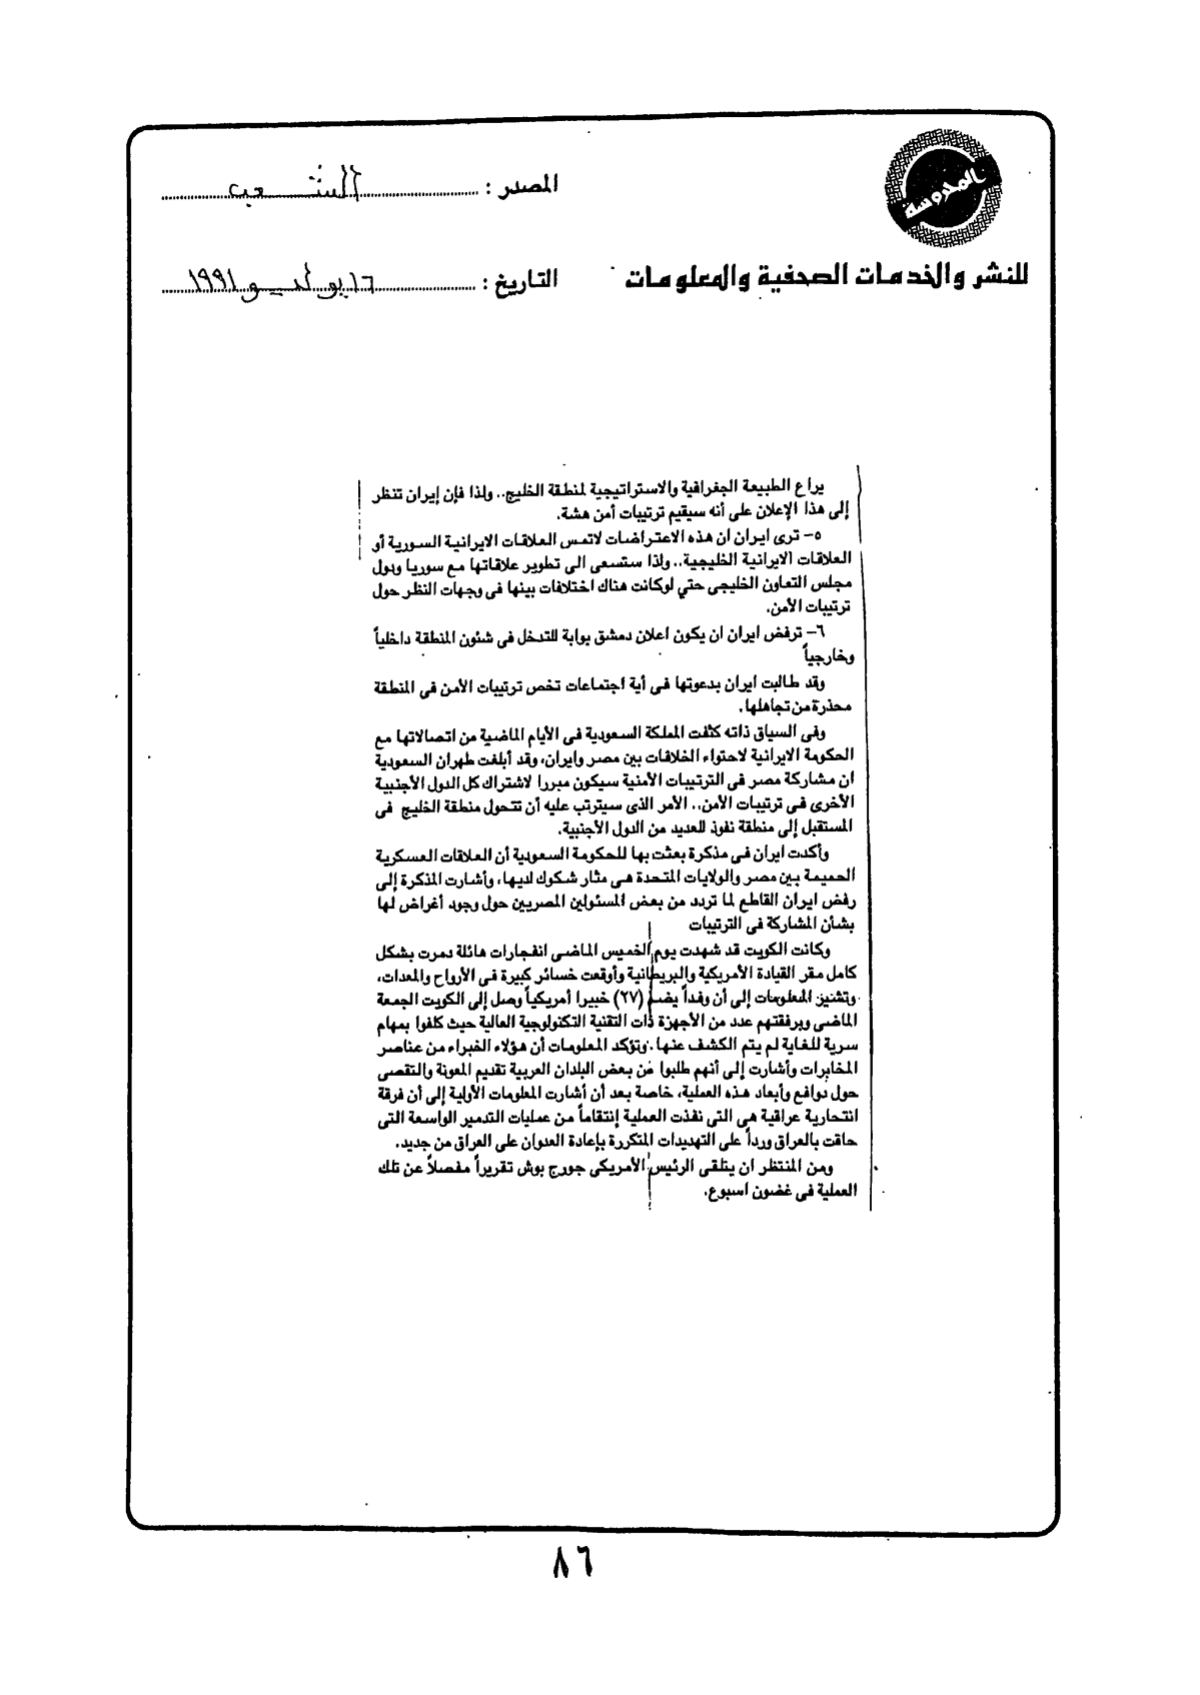 المحروسة
المصدر : الشعب
للنشر والخدمات الصحفية والمعلومات
التاريخ : ١٦ يوليو ١٩٩١
يراع الطبيعة الجغرافية والاستراتيجية لمنطقة الخليج.. ولذا فإن إيران تنظر
إلى هذا الإعلان على أنه سيقيم ترتيبات أمن هشة.
٥- ترى ايران ان هذه الاعتراضات لاتمس العلاقات الايرانية السورية أو
العلاقات الايرانية الخليجية.. ولذا ستسعى الى تطوير علاقاتها مع سوريا ودول
مجلس التعاون الخليجى حتي لوكانت هناك اختلافات بينها فى وجهات النظر حول
ترتيبات الأمن.
٦- ترفض ايران ان يكون اعلان دمشق بوابة للتدخل فى شئون المنطقة داخلياً
وخارجياً
وقد طالبت ايران بدعوتها فى أية اجتماعات تخص ترتيبات الأمن فى المنطقة
محذرة من تجاهلها.
وفى السياق ذاته كثفت المملكة السعودية فى الأيام الماضية من اتصالاتها مع
الحكومة الايرانية لاحتواء الخلافات بين مصر وايران، وقد أبلغت طهران السعودية
ان مشاركة مصر فى الترتيبات الأمنية سيكون مبررا لاشتراك كل الدول الأجنبية
الأخرى فى ترتيبات الأمن.. الأمر الذى سيترتب عليه أن تتحول منطقة الخليج فى
المستقبل إلى منطقة نفوذ للعديد من الدول الأجنبية.
وأكدت ايران فى مذكرة بعثت بها للحكومة السعودية أن العلاقات العسكرية
الحميمة بين مصر والولايات المتحدة هى مثار شكوك لديها، وأشارت المذكرة إلى
رفض ايران القاطع لما تردد من بعض المسئولين المصريين حول وجود أغراض لها
بشأن المشاركة فى الترتيبات
وكانت الكويت قد شهدت يوم الخميس الماضى انفجارات هائلة دمرت بشكل
كامل مقر القيادة الأمريكية والبريطانية وأوقعت خسائر كبيرة فى الأرواح والمعدات،
وتشير المعلومات إلى أن وفداً يضم (٢٧) خبيرا أمريكياً وصل إلى الكويت الجمعة
الماضى وبرفقتهم عدد من الأجهزة ذات التقنية التكنولوجية العالية حيث كلفوا بمهام
سرية للغاية لم يتم الكشف عنها. وتؤكد المعلومات أن هؤلاء الخبراء من عناصر
المخابرات وأشارت إلى أنهم طلبوا من بعض البلدان العربية تقديم المعونة والتقصى
حول دوافع وأبعاد هذه العملية، خاصة بعد أن أشارت المعلومات الأولية إلى أن فرقة
انتحارية عراقية هى التى نفذت العملية إنتقاماً من عمليات التدمير الواسعة التى
حاقت بالعراق ورداً على التهديدات المتكررة بإعادة العدوان على العراق من جديد.
ومن المنتظر ان يتلقى الرئيس الأمريكى جورج بوش تقريراً مفصلاً عن تلك
العملية فى غضون اسبوع.
٨٦